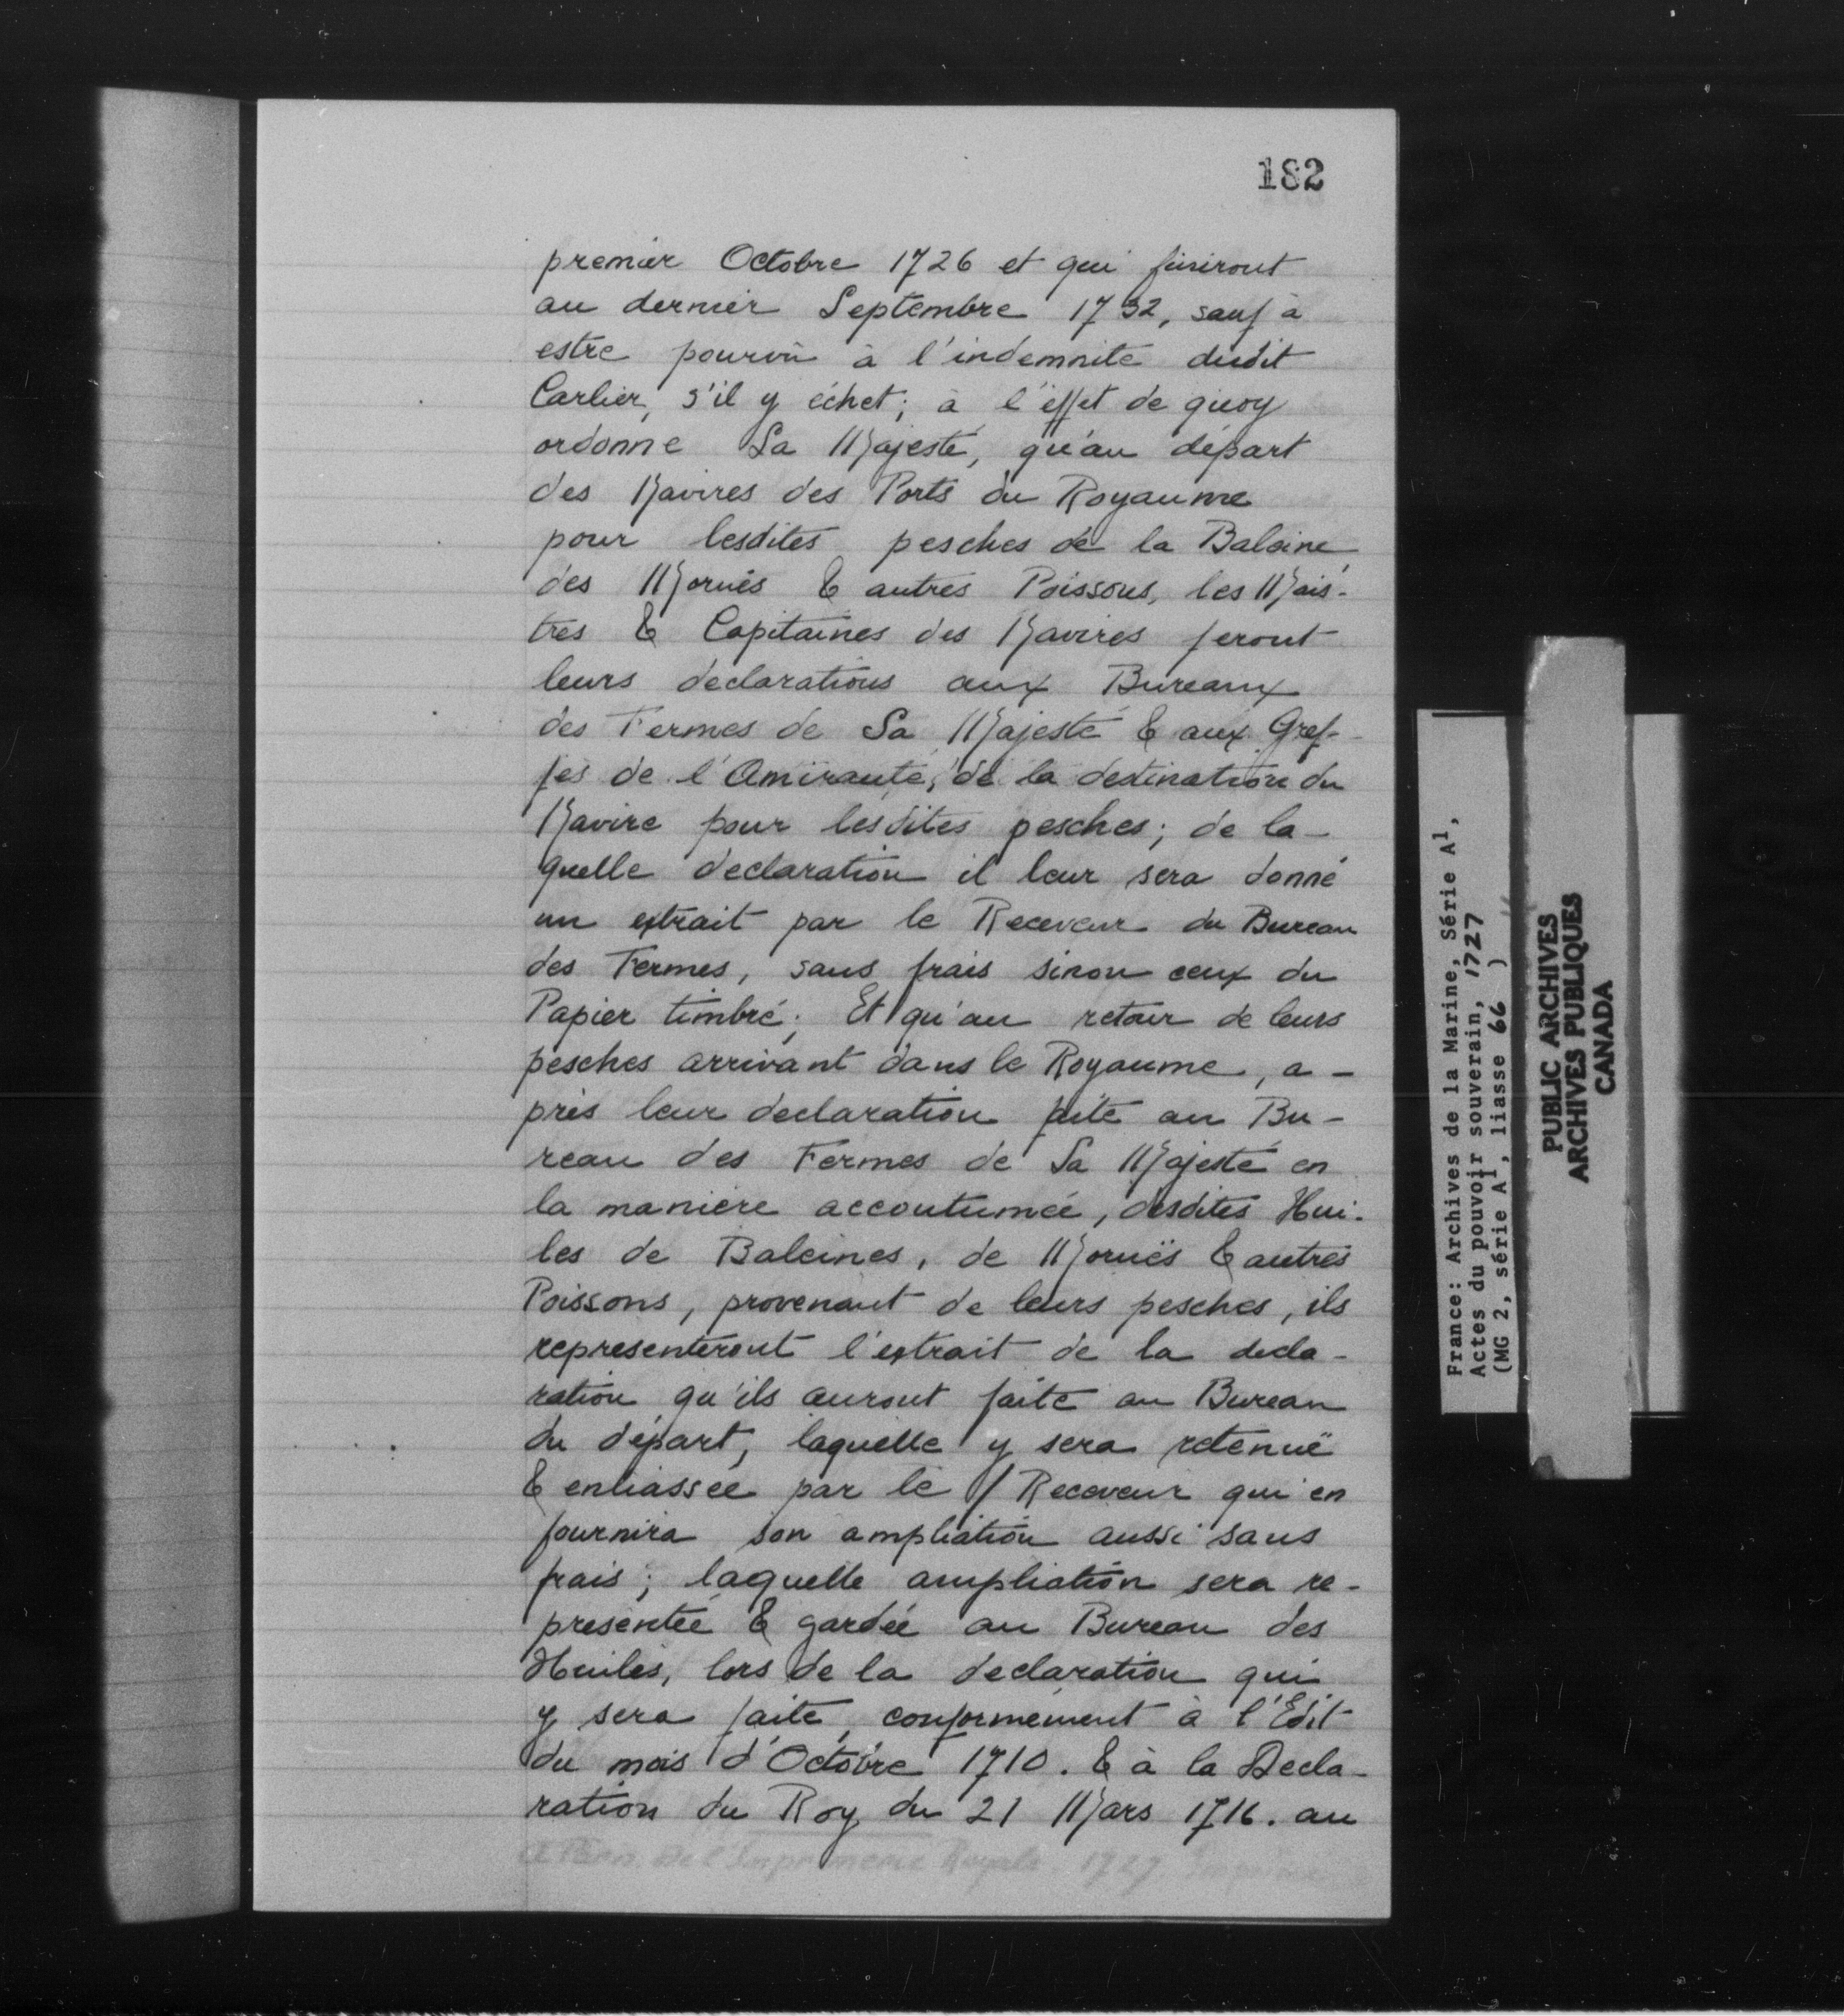 182
premier Octobre 1726 et qui finiront
au dernier Septembre 1732, sauf à
estre pourvû à l'indemnité dudit
Carlier, s'il y échet; à l'effet de quoy
ordonne Sa Majesté, qu'au départ
des Navires des Ports du Royaume
pour lesdites pesches de la Baleine,
des Moruës & autres Poissons, les Mais-
tres & Capitaines des Navires feront
leurs declarations aux Bureaux
des Fermes de Sa Majesté & aux Gref-
fes de l'Amirauté, de la destination du
Navire pour lesdites pesches; de la-
quelle declaration il leur sera donné
un extrait par le Receveur du Bureau
des Fermes, sans frais sinon ceux du
Papier timbré; Et qu'au retour de leurs
pesches arrivant dans le Royaume, a-
près leur declaration faite au Bu-
reau des Fermes de Sa Majesté en
la manière accoutumée, desdites Hui-
les de Baleines, de Moruës & autres
Poissons, provenant de leurs pesches, ils
representeront l'extrait de la decla-
ration qu'ils auront faite au Bureau
du départ, laquelle y sera retenuë
& enliassée par le / Receveur qui en
fournira son ampliation aussi sans
frais; laquelle ampliation sera re-
presentée & gardée au Bureau des
Huiles, lors de la declaration qui
y sera faite, conformément à l'Edit
du mois d'Octobre 1710. & à la Decla-
ration du Roy du 21 Mars 1716. au
A Paris, de l'Imprimerie Royale. 1727.
France: Archives de la Marine, Série A1,
Actes du pouvoir souverain, 1727
(MG 2, série A1, liasse 66 )
PUBLIC ARCHIVES
ARCHIVES PUBLIQUES
CANADA